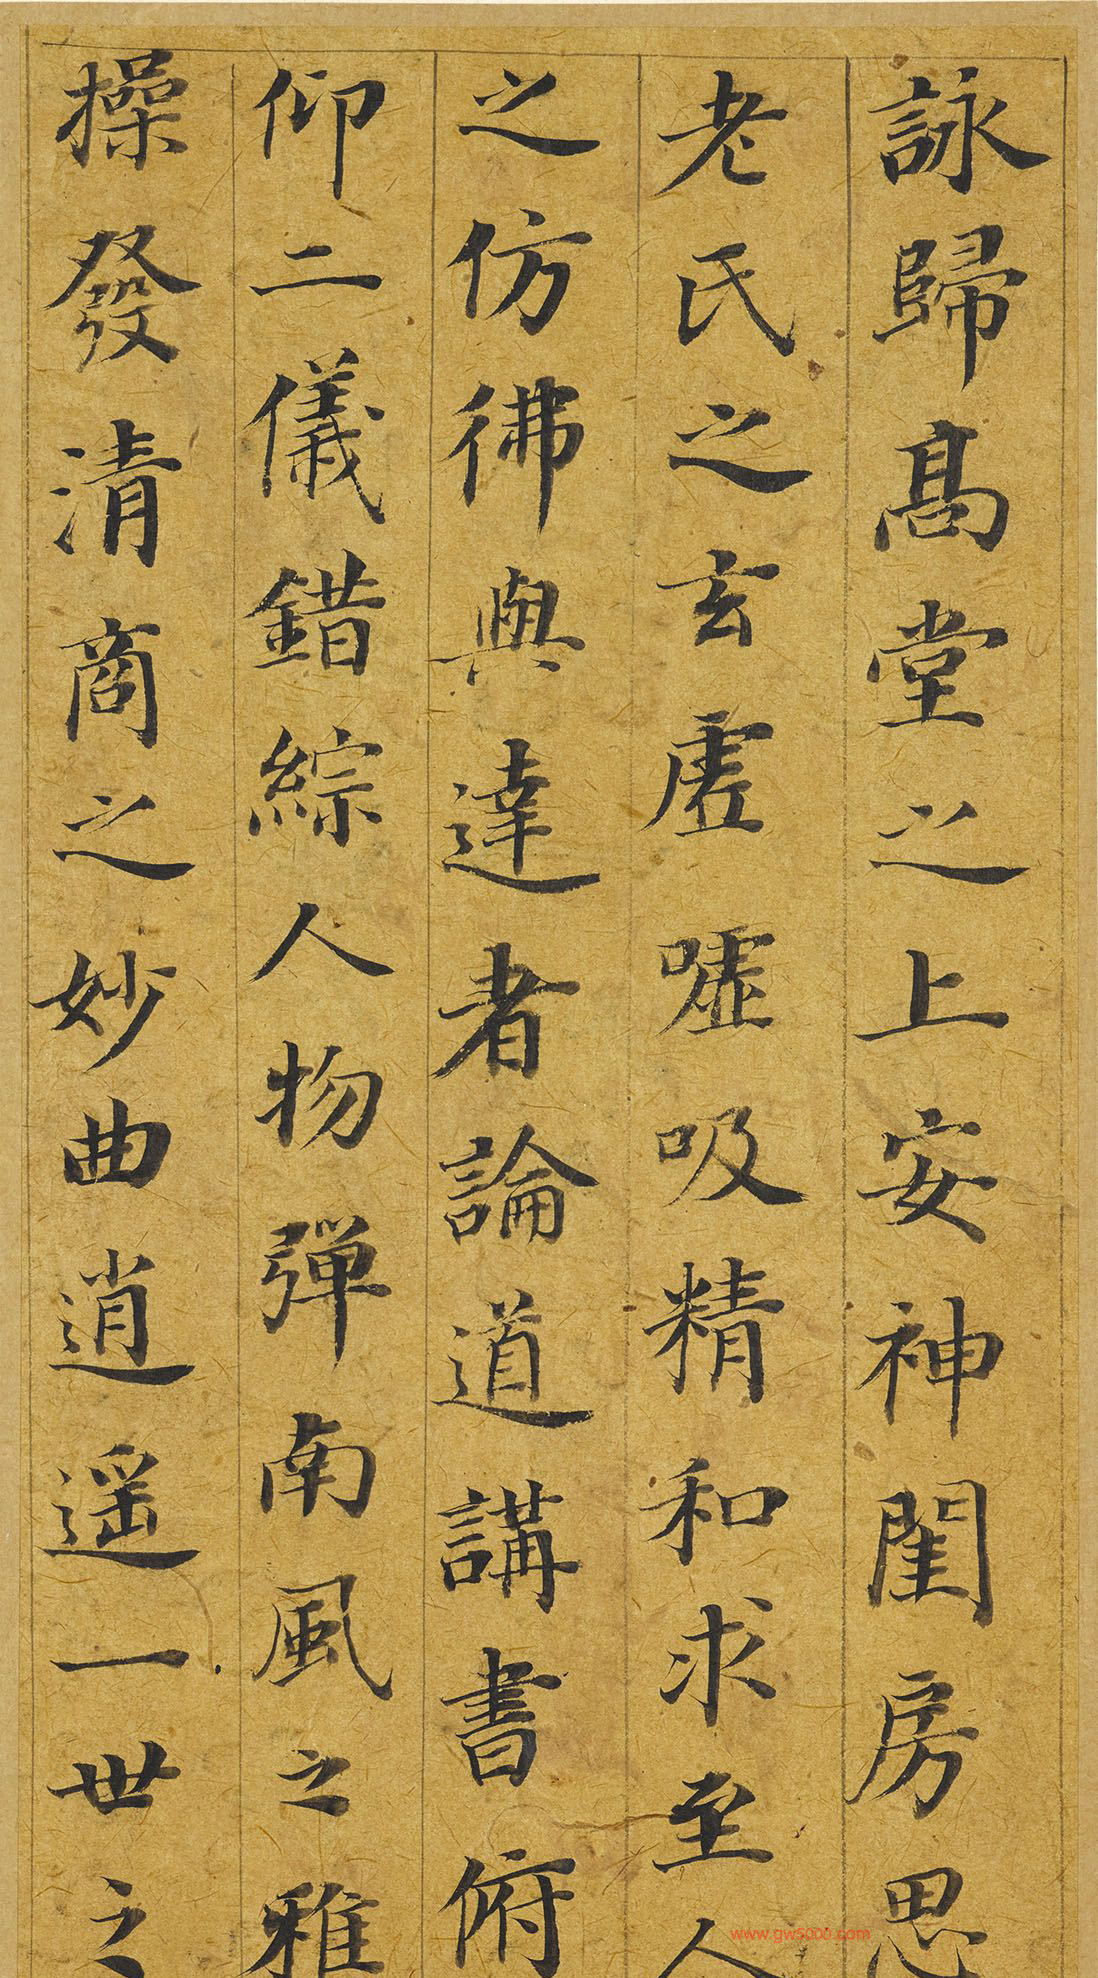 詠歸高堂之上安神閨房思
老氏之玄虛噓吸精和求至人
之仿彿與達者論道講書俯
仰二儀錯綜人物彈南風之雅
操發清商之妙曲逍遥一世之
www.gw5000.com